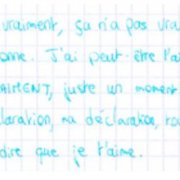 vraiment, ça n'a pas vrai
onne. J'ai peut-être l'ai
juste un moment
laration, ma déclaration, tou
dire que je t'aime.